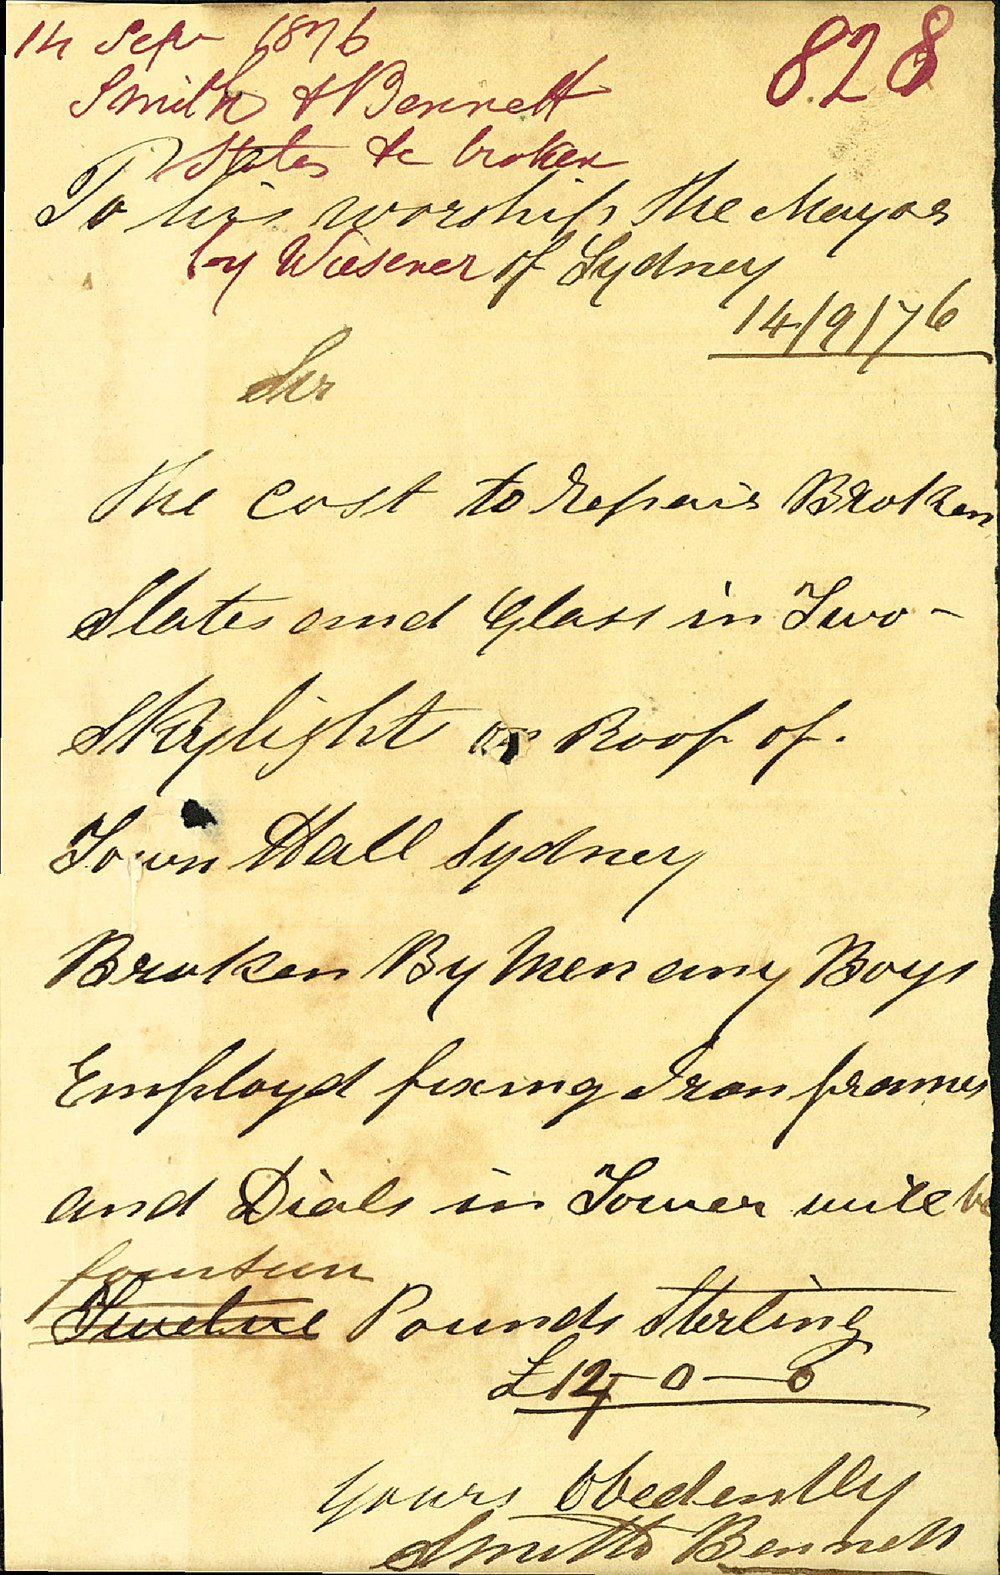 14 Sepr 1876
828
Smith & Bennett
Slates &c broken
To his worship the Mayor
by Wiesener of Sydney
14/9/76
Sir
The cost to repair Broken
Slates and Glass in Two -
Skylights on Roof of.
Town Hall Sydney
Broken By Men any Boys
Employd fixing Iron frames
and Dials in Tower will be
fourteen
Twelve Pounds Sterling
£14-0-0
Yours Obedently
Smith Bennett